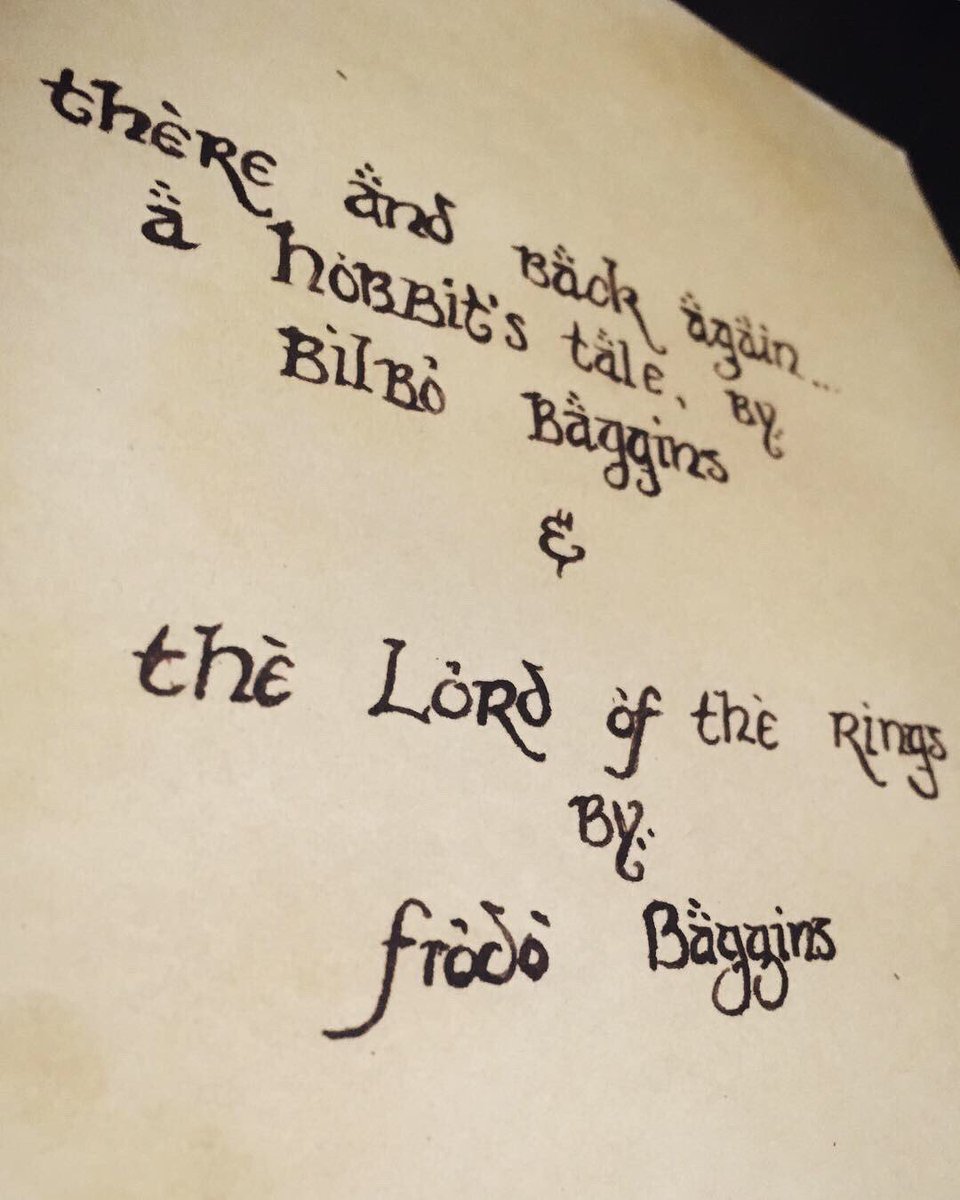 there and Back again...
a hobbit's tale, By
Bilbo Baggins
&
the Lord of the Rings
By
frodo Baggins